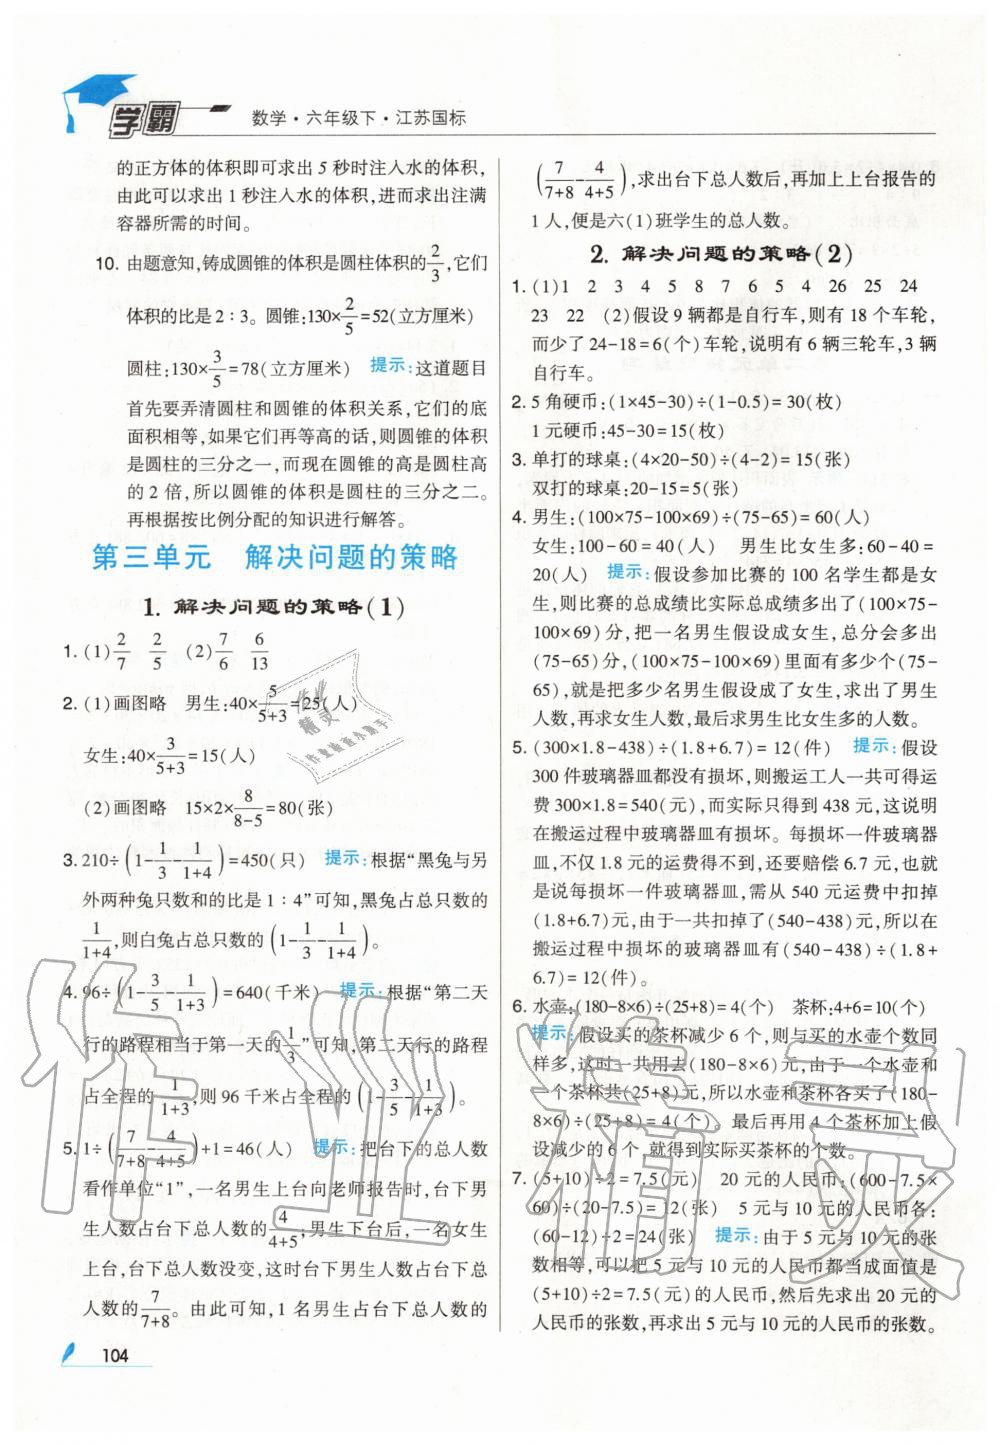 学霸 数学·六年级下·江苏国标
的正方体的体积即可求出 5 秒时注入水的体积,
由此可以求出 1 秒注入水的体积,进而求出注满
容器所需的时间。
10. 由题意知,铸成圆锥的体积是圆柱体积的2/3,它们
体积的比是 2∶3。圆锥:130×2/5=52(立方厘米)
圆柱:130×3/5=78(立方厘米) 提示:这道题目
首先要弄清圆柱和圆锥的体积关系,它们的底
面积相等,如果它们再等高的话,则圆锥的体积
是圆柱的三分之一,而现在圆锥的高是圆柱高
的 2 倍,所以圆锥的体积是圆柱的三分之二。
再根据按比例分配的知识进行解答。
第三单元 解决问题的策略
1. 解决问题的策略(1)
1. (1)2/7 2/5 (2)7/6 6/13
2. (1)画图略 男生:40×5/(5+3)=25(人)
女生:40×3/(5+3)=15(人)
(2)画图略 15×2×8/(8-5)=80(张)
3. 210÷(1-1/3-1/(1+4))=450(只) 提示:根据“黑兔与另
外两种兔只数和的比是 1∶4”可知,黑兔占总只数的
1/(1+4),则白兔占总只数的(1-1/3-1/(1+4))。
4. 96÷(1-3/5-1/(1+3))=640(千米) 提示:根据“第二天
行的路程相当于第一天的1/3”可知,第二天行的路程
占全程的1/(1+3),则 96 千米占全程的(1-3/5-1/(1+3))。
5. 1÷(7/(7+8)-4/(4+5))+1=46(人) 提示:把台下的总人数
看作单位“1”,一名男生上台向老师报告时,台下男
生人数占台下总人数的4/(4+5);男生下台后,一名女生
上台,台下总人数没变,这时台下男生人数占台下总
人数的7/(7+8)。由此可知,1 名男生占台下总人数的
104
(7/(7+8)-4/(4+5)),求出台下总人数后,再加上上台报告的
1 人,便是六(1)班学生的总人数。
2. 解决问题的策略(2)
1. (1)1 2 3 4 5 8 7 6 5 4 26 25 24
23 22 (2)假设 9 辆都是自行车,则有 18 个车轮,
而少了 24-18=6(个)车轮,说明有 6 辆三轮车,3 辆
自行车。
2. 5 角硬币:(1×45-30)÷(1-0.5)=30(枚)
1 元硬币:45-30=15(枚)
3. 单打的球桌:(4×20-50)÷(4-2)=15(张)
双打的球桌:20-15=5(张)
4. 男生:(100×75-100×69)÷(75-65)=60(人)
女生:100-60=40(人) 男生比女生多:60-40=
20(人) 提示:假设参加比赛的 100 名学生都是女
生,则比赛的总成绩比实际总成绩多出了(100×75-
100×69)分,把一名男生假设成女生,总分会多出
(75-65)分,(100×75-100×69)里面有多少个(75-
65),就是把多少名男生假设成了女生,求出了男生
人数,再求女生人数,最后求男生比女生多的人数。
5. (300×1.8-438)÷(1.8+6.7)=12(件) 提示:假设
300 件玻璃器皿都没有损坏,则搬运工人一共可得运
费 300×1.8=540(元),而实际只得到 438 元,这说明
在搬运过程中玻璃器皿有损坏。每损坏一件玻璃器
皿,不仅 1.8 元的运费得不到,还要赔偿 6.7 元,也就
是说每损坏一件玻璃器皿,需从 540 元运费中扣掉
(1.8+6.7)元,由于一共扣掉了(540-438)元,所以在
搬运过程中损坏的玻璃器皿有(540-438)÷(1.8+
6.7)=12(件)。
6. 水壶:(180-8×6)÷(25+8)=4(个) 茶杯:4+6=10(个)
提示:假设买的茶杯减少 6 个,则与买的水壶个数同
样多,这时一共用去(180-8×6)元,由于一个水壶和
一个茶杯共(25+8)元,所以水壶和茶杯各买了(180-
8×6)÷(25+8)=4(个)。最后再用 4 个茶杯加上假
设减少的 6 个,就得到实际买茶杯的个数。
7. (5+10)÷2=7.5(元) 20 元的人民币:(600-7.5×
60)÷(20-7.5)=12(张) 5 元与 10 元的人民币各:
(60-12)÷2=24(张) 提示:由于 5 元与 10 元的张
数相等,可以把 5 元与 10 元的人民币都当成面值是
(5+10)÷2=7.5(元)的人民币,然后先求出 20 元的
人民币的张数,再求出 5 元与 10 元的人民币的张数。
作业精灵